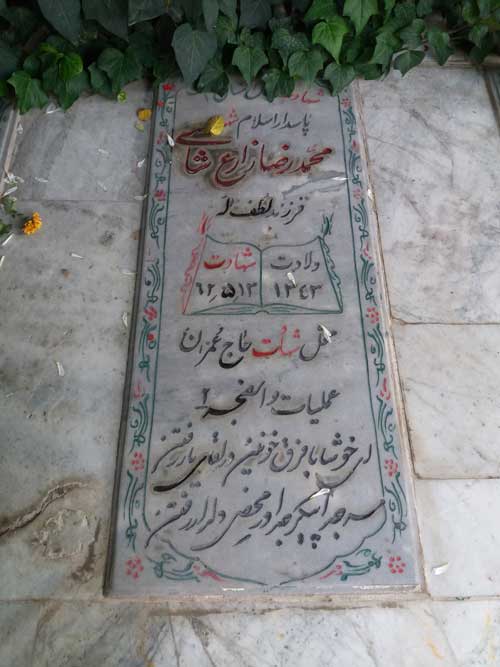 پاسدار اسلام شهید
محمدرضا زارع شاهی
فرزند لطف اله
ولادت شهادت
۱۳۴۳ ۶۲ ۵ ۱۳
محل شهادت حاج عمران
عملیات والفجر ۲
ای خوشا با فرق خونین در لقای یار رفتن
سر جدا پیکر جدا در محضر دلدار رفتن